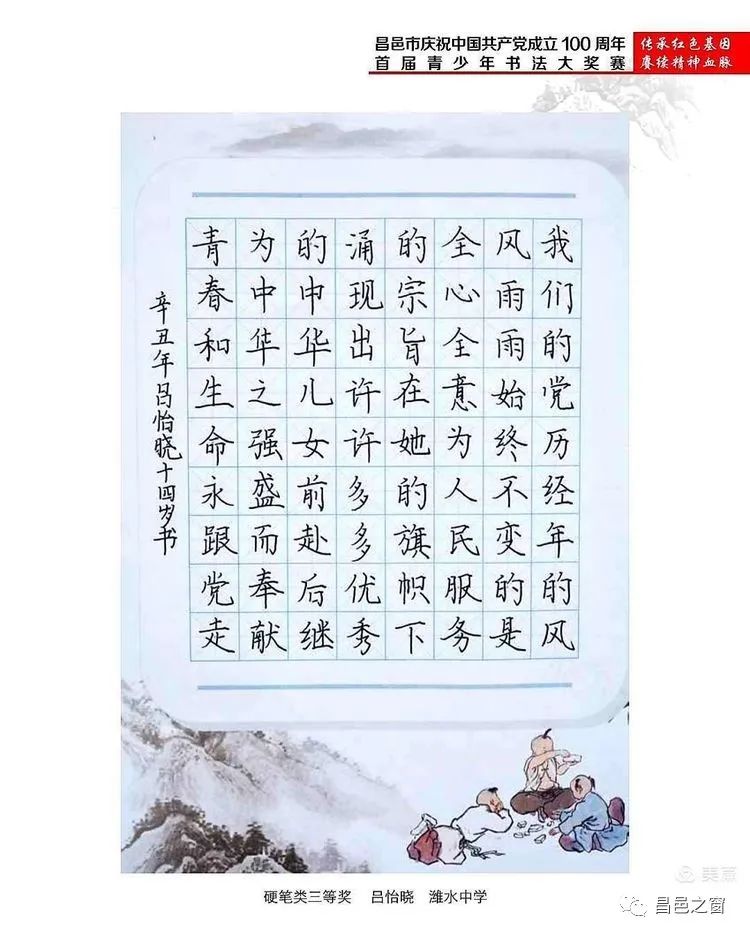 昌邑市庆祝中国共产党成立100周年
首届青少年书法大奖赛
传承红色基因
赓续精神血脉
我们的党历经年的风
风雨雨始终不变的是
全心全意为人民服务
的宗旨在她的旗帜下
涌现出许许多多优秀
的中华儿女前赴后继
为中华之强盛而奉献
青春和生命永跟党走
辛丑年吕怡晓十四岁书
美篇
硬笔类三等奖 吕怡晓 潍水中学
昌邑之窗